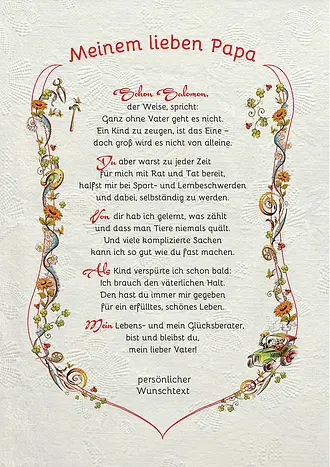 Meinem lieben Papa
Schon Salomon,
der Weise, spricht:
Ganz ohne Vater geht es nicht.
Ein Kind zu zeugen, ist das Eine –
doch groß wird es nicht von alleine.
Du aber warst zu jeder Zeit
für mich mit Rat und Tat bereit,
halfst mir bei Sport- und Lernbeschwerden
und dabei, selbständig zu werden.
Von dir hab ich gelernt, was zählt
und dass man Tiere niemals quält.
Und viele komplizierte Sachen
kann ich so gut wie du fast machen.
Als Kind verspürte ich schon bald:
Ich brauch den väterlichen Halt.
Den hast du immer mir gegeben
für ein erfülltes, schönes Leben.
Mein Lebens- und mein Glücksberater,
bist und bleibst du,
mein lieber Vater!
persönlicher
Wunschtext